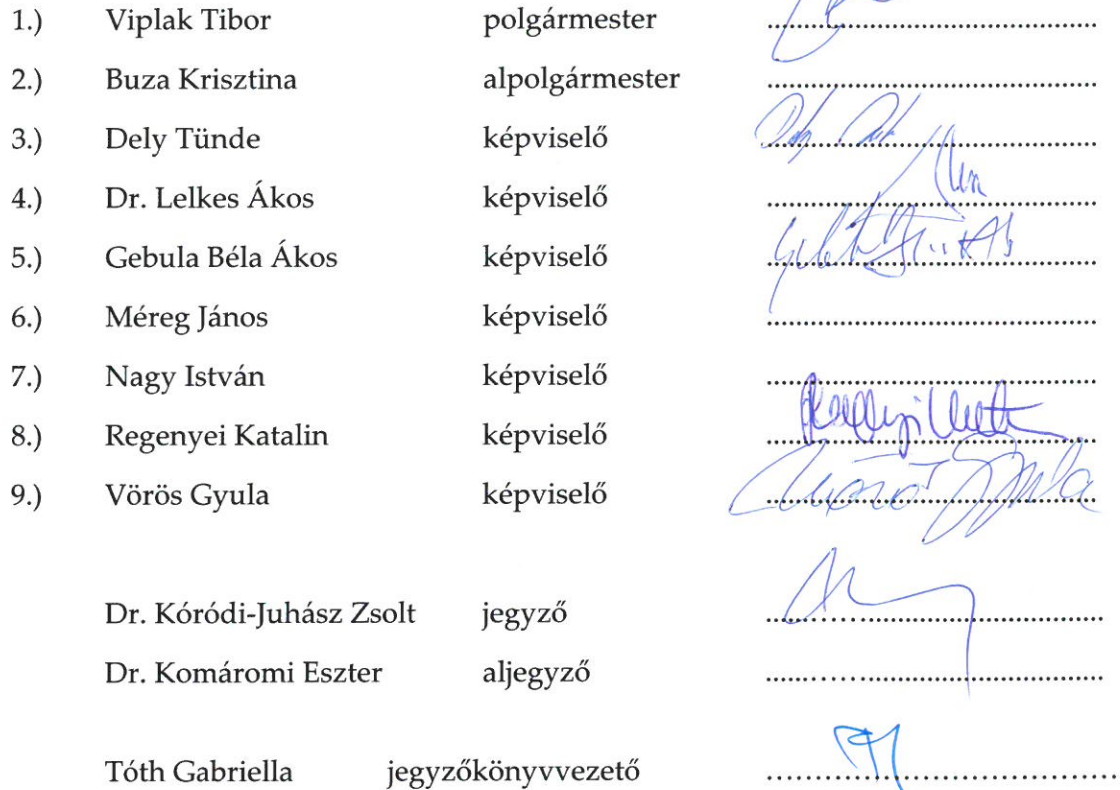 1.) Viplak Tibor polgármester ........................................
2.) Buza Krisztina alpolgármester ........................................
3.) Dely Tünde képviselő ........................................
4.) Dr. Lelkes Ákos képviselő ........................................
5.) Gebula Béla Ákos képviselő ........................................
6.) Méreg János képviselő ........................................
7.) Nagy István képviselő ........................................
8.) Regenyei Katalin képviselő ........................................
9.) Vörös Gyula képviselő ........................................
Dr. Kóródi-Juhász Zsolt jegyző ........................................
Dr. Komáromi Eszter aljegyző ........................................
Tóth Gabriella jegyzőkönyvvezető ........................................